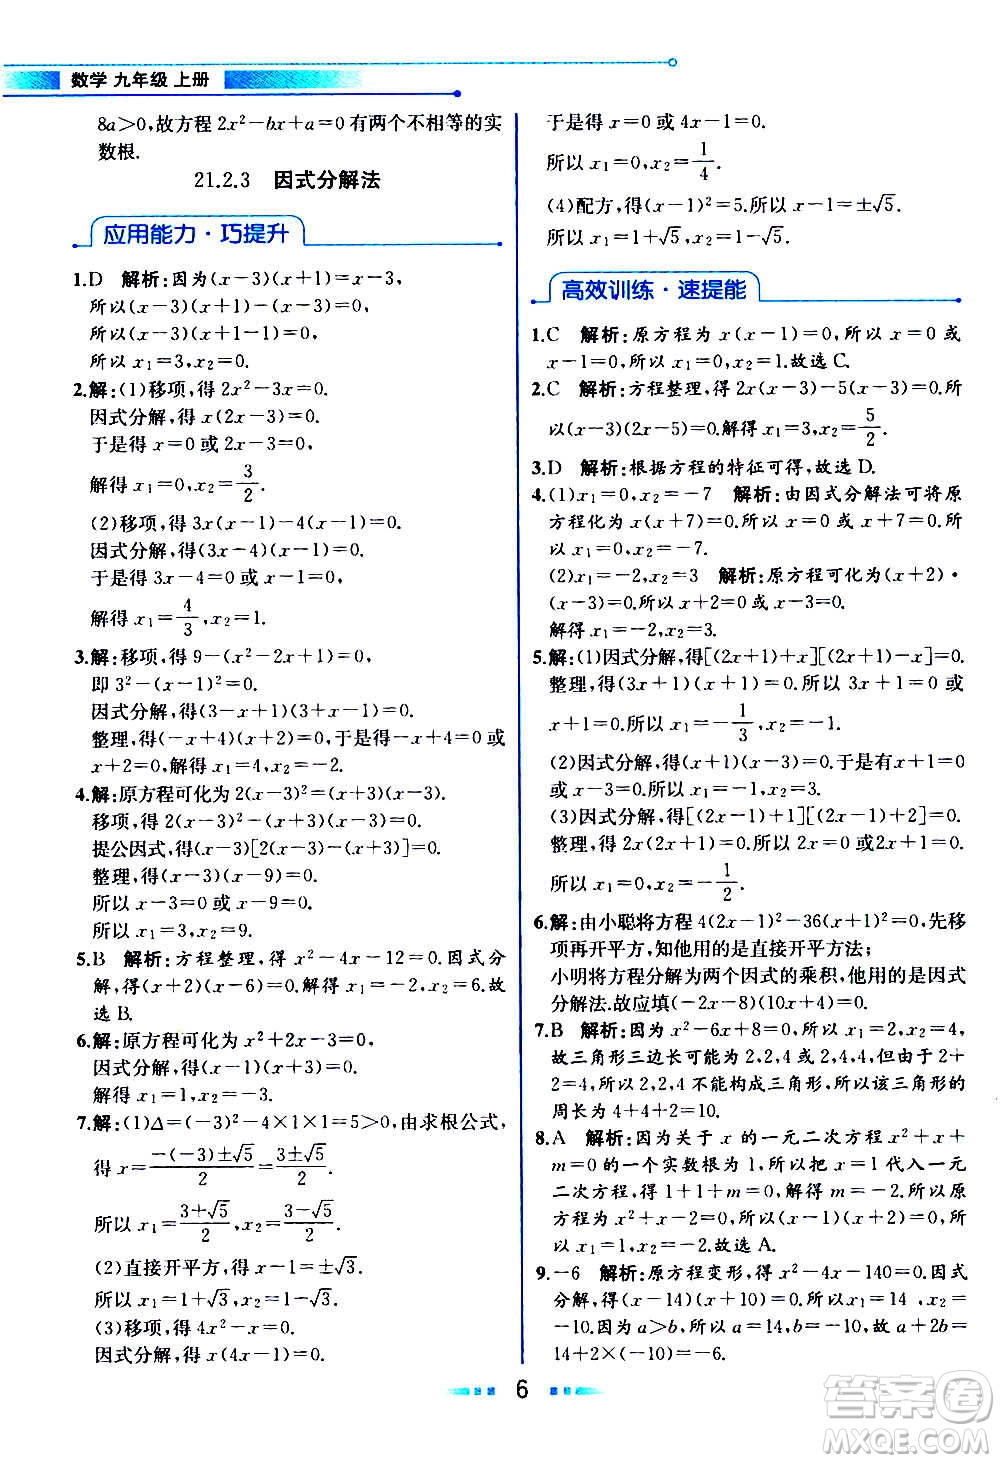 数学 九年级 上册
8a＞0,故方程 2x²－bx＋a＝0 有两个不相等的实
数根.
21.2.3 因式分解法
应用能力·巧提升
1.D 解析:因为(x－3)(x＋1)＝x－3,
所以(x－3)(x＋1)－(x－3)＝0.
所以(x－3)(x＋1－1)＝0.
所以 x₁＝3,x₂＝0.
2.解:(1)移项,得 2x²－3x＝0.
因式分解,得 x(2x－3)＝0.
于是得 x＝0 或 2x－3＝0.
解得 x₁＝0,x₂＝3/2.
(2)移项,得 3x(x－1)－4(x－1)＝0.
因式分解,得(3x－4)(x－1)＝0.
于是得 3x－4＝0 或 x－1＝0.
解得 x₁＝4/3,x₂＝1.
3.解:移项,得 9－(x²－2x＋1)＝0.
即 3²－(x－1)²＝0.
因式分解,得(3－x＋1)(3＋x－1)＝0.
整理,得(－x＋4)(x＋2)＝0,于是得－x＋4＝0 或
x＋2＝0,解得 x₁＝4,x₂＝－2.
4.解:原方程可化为 2(x－3)²＝(x＋3)(x－3).
移项,得 2(x－3)²－(x＋3)(x－3)＝0.
提公因式,得(x－3)[2(x－3)－(x＋3)]＝0.
整理,得(x－3)(x－9)＝0.
所以 x－3＝0 或 x－9＝0.
所以 x₁＝3,x₂＝9.
5.B 解析:方程整理,得 x²－4x－12＝0.因式分
解,得(x＋2)(x－6)＝0.解得 x₁＝－2,x₂＝6.故
选 B.
6.解:原方程可化为 x²＋2x－3＝0,
因式分解,得(x＋3)(x－1)＝0.
解得 x₁＝1,x₂＝－3.
7.解:(1)Δ＝(－3)²－4×1×1＝5＞0,由求根公式,
得 x＝(－(－3)±√5)/2＝(3±√5)/2.
所以 x₁＝(3＋√5)/2,x₂＝(3－√5)/2.
(2)直接开平方,得 x－1＝±√3.
所以 x₁＝1＋√3,x₂＝1－√3.
(3)移项,得 4x²－x＝0.
因式分解,得 x(4x－1)＝0.
于是得 x＝0 或 4x－1＝0.
所以 x₁＝0,x₂＝1/4.
(4)配方,得(x－1)²＝5.所以 x－1＝±√5.
所以 x₁＝1＋√5,x₂＝1－√5.
高效训练·速提能
1.C 解析:原方程为 x(x－1)＝0,所以 x＝0 或
x－1＝0,所以 x₁＝0,x₂＝1.故选 C.
2.C 解析:方程整理,得 2x(x－3)－5(x－3)＝0.所
以(x－3)(2x－5)＝0.解得 x₁＝3,x₂＝5/2.
3.D 解析:根据方程的特征可得,故选 D.
4.(1)x₁＝0,x₂＝－7 解析:由因式分解法可将原
方程化为 x(x＋7)＝0.所以 x＝0 或 x＋7＝0.所
以 x₁＝0,x₂＝－7.
(2)x₁＝－2,x₂＝3 解析:原方程可化为(x＋2)·
(x－3)＝0.所以 x＋2＝0 或 x－3＝0.
解得 x₁＝－2,x₂＝3.
5.解:(1)因式分解,得[(2x＋1)＋x][(2x＋1)－x]＝0.
整理,得(3x＋1)(x＋1)＝0.所以 3x＋1＝0 或
x＋1＝0.所以 x₁＝－1/3,x₂＝－1.
(2)因式分解,得(x＋1)(x－3)＝0.于是有 x＋1＝0
或 x－3＝0.所以 x₁＝－1,x₂＝3.
(3)因式分解,得[(2x－1)＋1][(2x－1)＋2]＝0.
整理,得 2x(2x＋1)＝0.所以 2x＝0 或 2x＋1＝0.
所以 x₁＝0,x₂＝－1/2.
6.解:由小聪将方程 4(2x－1)²－36(x＋1)²＝0,先移
项再开平方,知他用的是直接开平方法;
小明将方程分解为两个因式的乘积,他用的是因式
分解法.故应填(－2x－8)(10x＋4)＝0.
7.B 解析:因为 x²－6x＋8＝0,所以 x₁＝2,x₂＝4,
故三角形三边长可能为 2,2,4 或 2,4,4.但由于 2＋
2＝4,所以 2,2,4 不能构成三角形,所以该三角形的
周长为 4＋4＋2＝10.
8.A 解析:因为关于 x 的一元二次方程 x²＋x＋
m＝0 的一个实数根为 1,所以把 x＝1 代入一元
二次方程,得 1＋1＋m＝0,解得 m＝－2.所以原
方程为 x²＋x－2＝0,所以(x－1)(x＋2)＝0,所
以 x₁＝1,x₂＝－2.故选 A.
9.－6 解析:原方程变形,得 x²－4x－140＝0.因式
分解,得(x－14)(x＋10)＝0.所以x₁＝14 ,x₂＝
－10.因为 a＞b,所以 a＝14,b＝－10,故 a＋2b＝
14＋2×(－10)＝－6.
6
答案圈
MXQE.COM